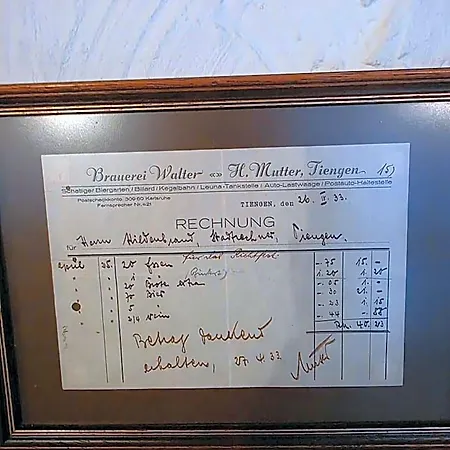 Brauerei Walter «» H. Mutter, Tiengen 15)
Schattiger Biergarten / Billard / Kegelbahn / Leuna-Tankstelle / Auto-Lastwaage / Postauto-Haltestelle
Postscheckkonto 30960 Karlsruhe
Fernsprecher Nr. 421
TIENGEN, den 26. 33.
RECHNUNG
für Herrn Hildenbrand, Tiengen.
April 25. 20 Essen für das Richtfest -.75 15.-
1 1.20 1.20
20 Brote extra -.05 1.-
70 Bier -.30 21.-
5 -.23 1.15
2/4 Wein -.44 -.88
Betrag dankend
erhalten, 27.4.33. Mutter